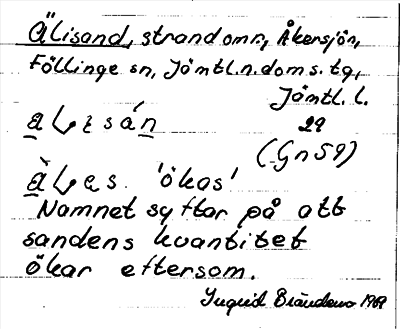 Älisand, strandomr, Åkersjön,
Föllinge sn, Jämtl.n.doms.tg,
Jämtl. l.
29
(Gn59)
'ökas'
Namnet syftar på att
sandens kvantitet
ökar eftersom.
Ingrid 1969